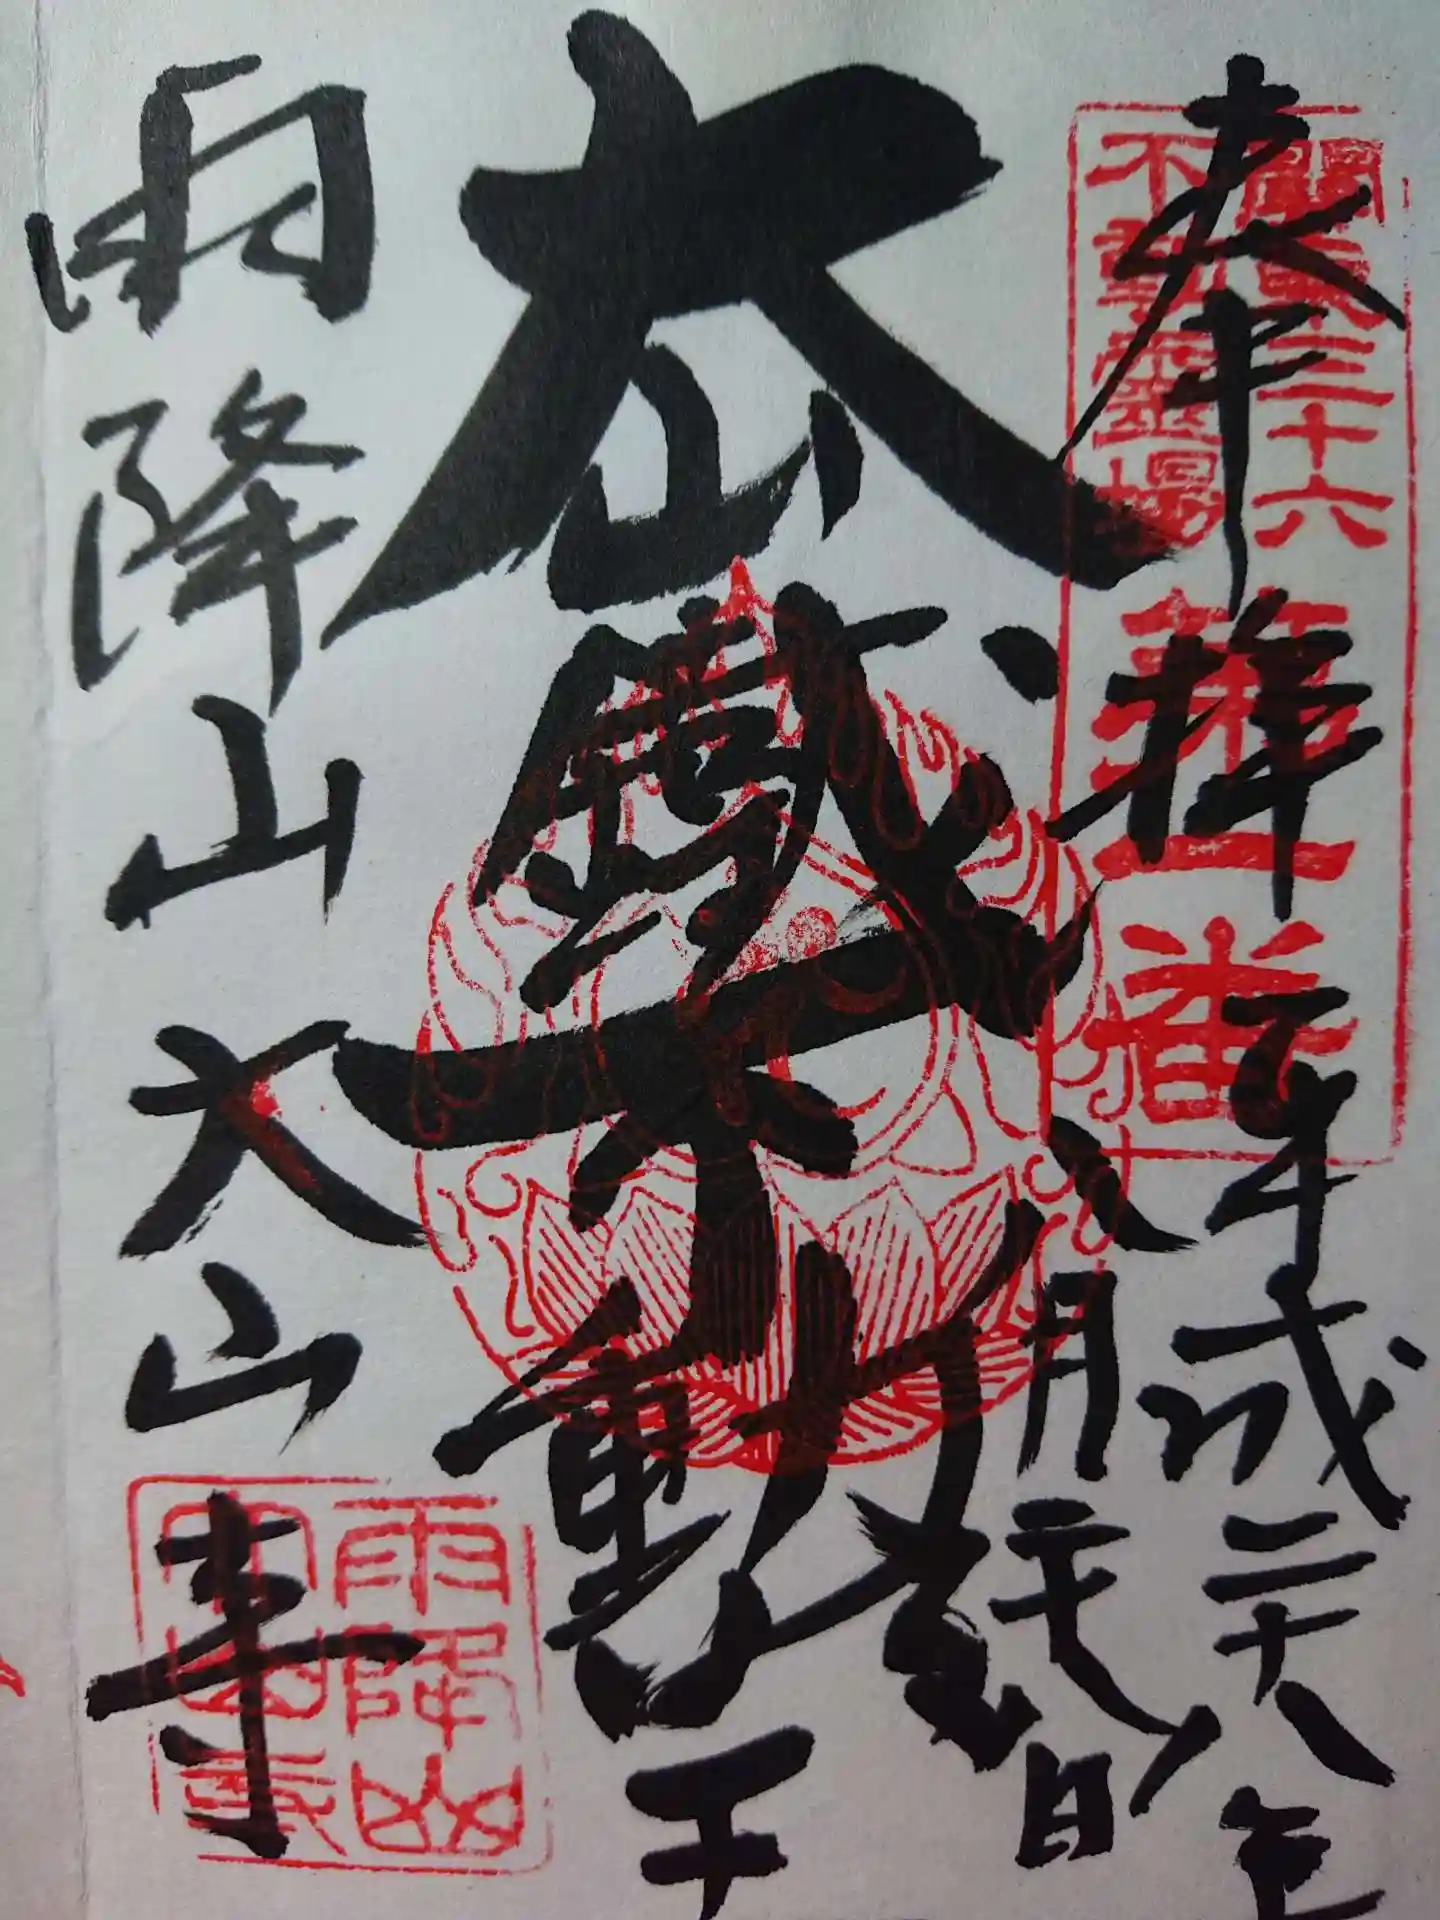 奉拝
平成二十八年
八月
日
關東三十六
不動霊場
第一番
大山
鐵不動
明王
雨降山大山寺
雨降山
大山寺